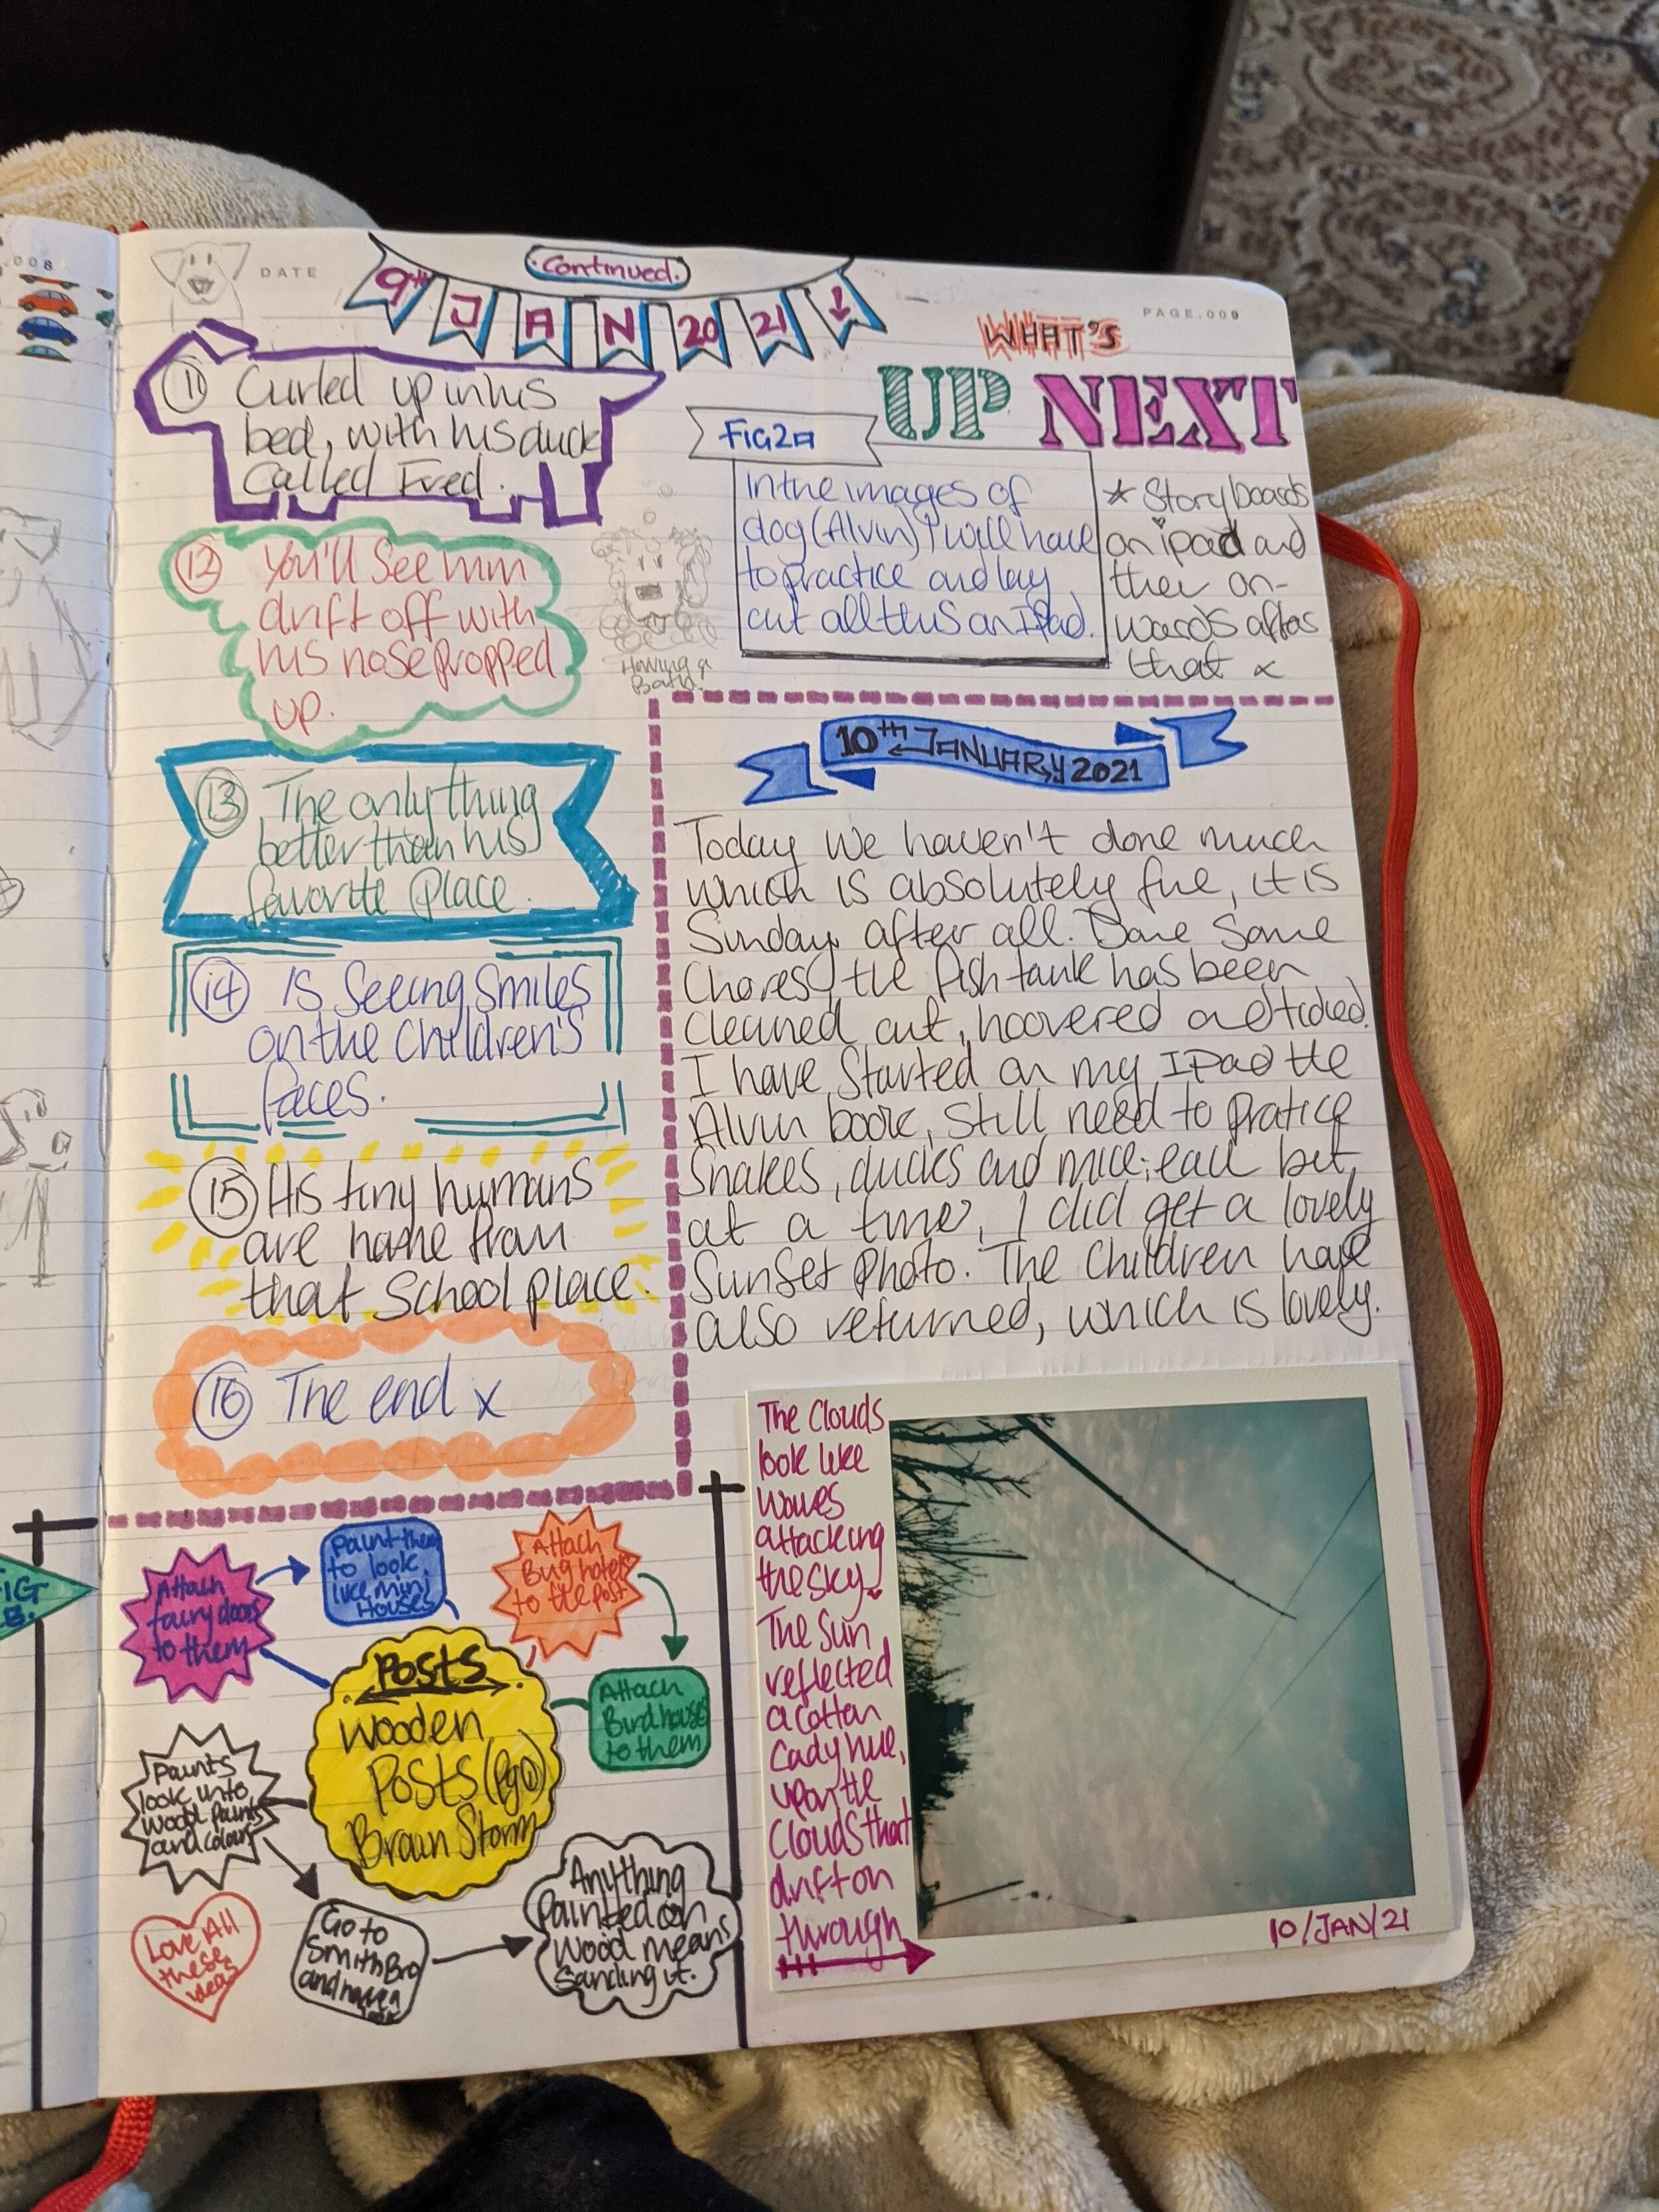 .008
DATE
Continued.
9th JAN 20 21
PAGE.009
11 Curled up in his
bed, with his duck
Called Fred.
12 You'll See him
drift off with
his nose propped
up.
Having a
Bath!
13 The only thing
better than his
favorite place.
14 is Seeing Smiles
on the Children's
faces.
15 His tiny humans
are home from
that School place.
16 The end x
WHAT'S
UP NEXT
FIG 2a
In the images of
dog (Alvin) I will have
to practice and lay
out all this on IPad.
* Storyboards
on ipad and
then on-
wards after
that x
10th JANUARY 2021
Today we haven't done much
which is absolutely fine, it is
Sunday after all. Done Some
Chores, the fish tank has been
cleaned out, hoovered and tidied.
I have Started on my IPad the
Alvin book, Still need to pratice
Snakes, ducks and mice; each bit
at a time, I did get a lovely
Sunset Photo. The Children have
also returned, which is lovely.
Attach
fairy doors
to them
Paint them
to look
like mini
Houses
Attach
Bug hotels
to the post
Attach
Birdhouse
to them
Posts
Wooden
Posts (Pg
Brain Storm
Paints
look into
wood paints
and colour
Go to
Smith Bro
and have a
look
Anything
Painted on
Wood means
Sanding it.
Love All
these
ideas
The Clouds
look like
Waves
attacking
the sky.
The Sun
reflected
a cotton
cady hue,
upon the
Clouds that
drift on
through
10/JAN/21